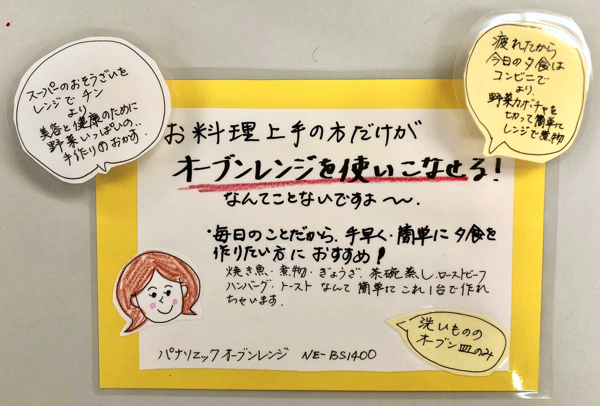 スーパーのおそうざいを
レンジでチン
より
美容と健康のために
野菜いっぱいの‥
手作りのおかず.
疲れたから
今日の夕食は
コンビニで
より.
野菜カボチャを
切って簡単に
レンジで煮物
お料理上手の方だけが
オーブンレンジを使いこなせる!
なんてことないですよ〜〜.
・毎日のことだから、手早く・簡単に夕食を
作りたい方におすすめ!
焼き魚・煮物・ぎょうざ、茶碗蒸し、ローストビーフ
ハンバーグ、トースト なんて簡単にこれ1台で作れ
ちゃいます.
洗いものの
オーブン皿のみ
パナソニックオーブンレンジ NE-BS1400